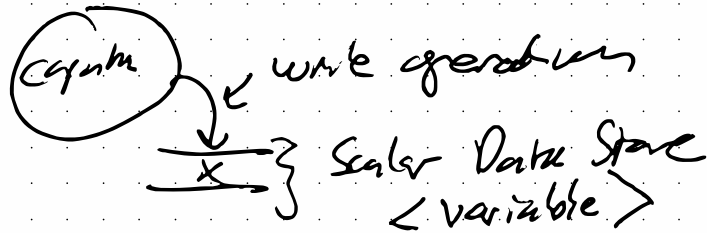 capture
write operation
x
Scalar Data Store
<variable>